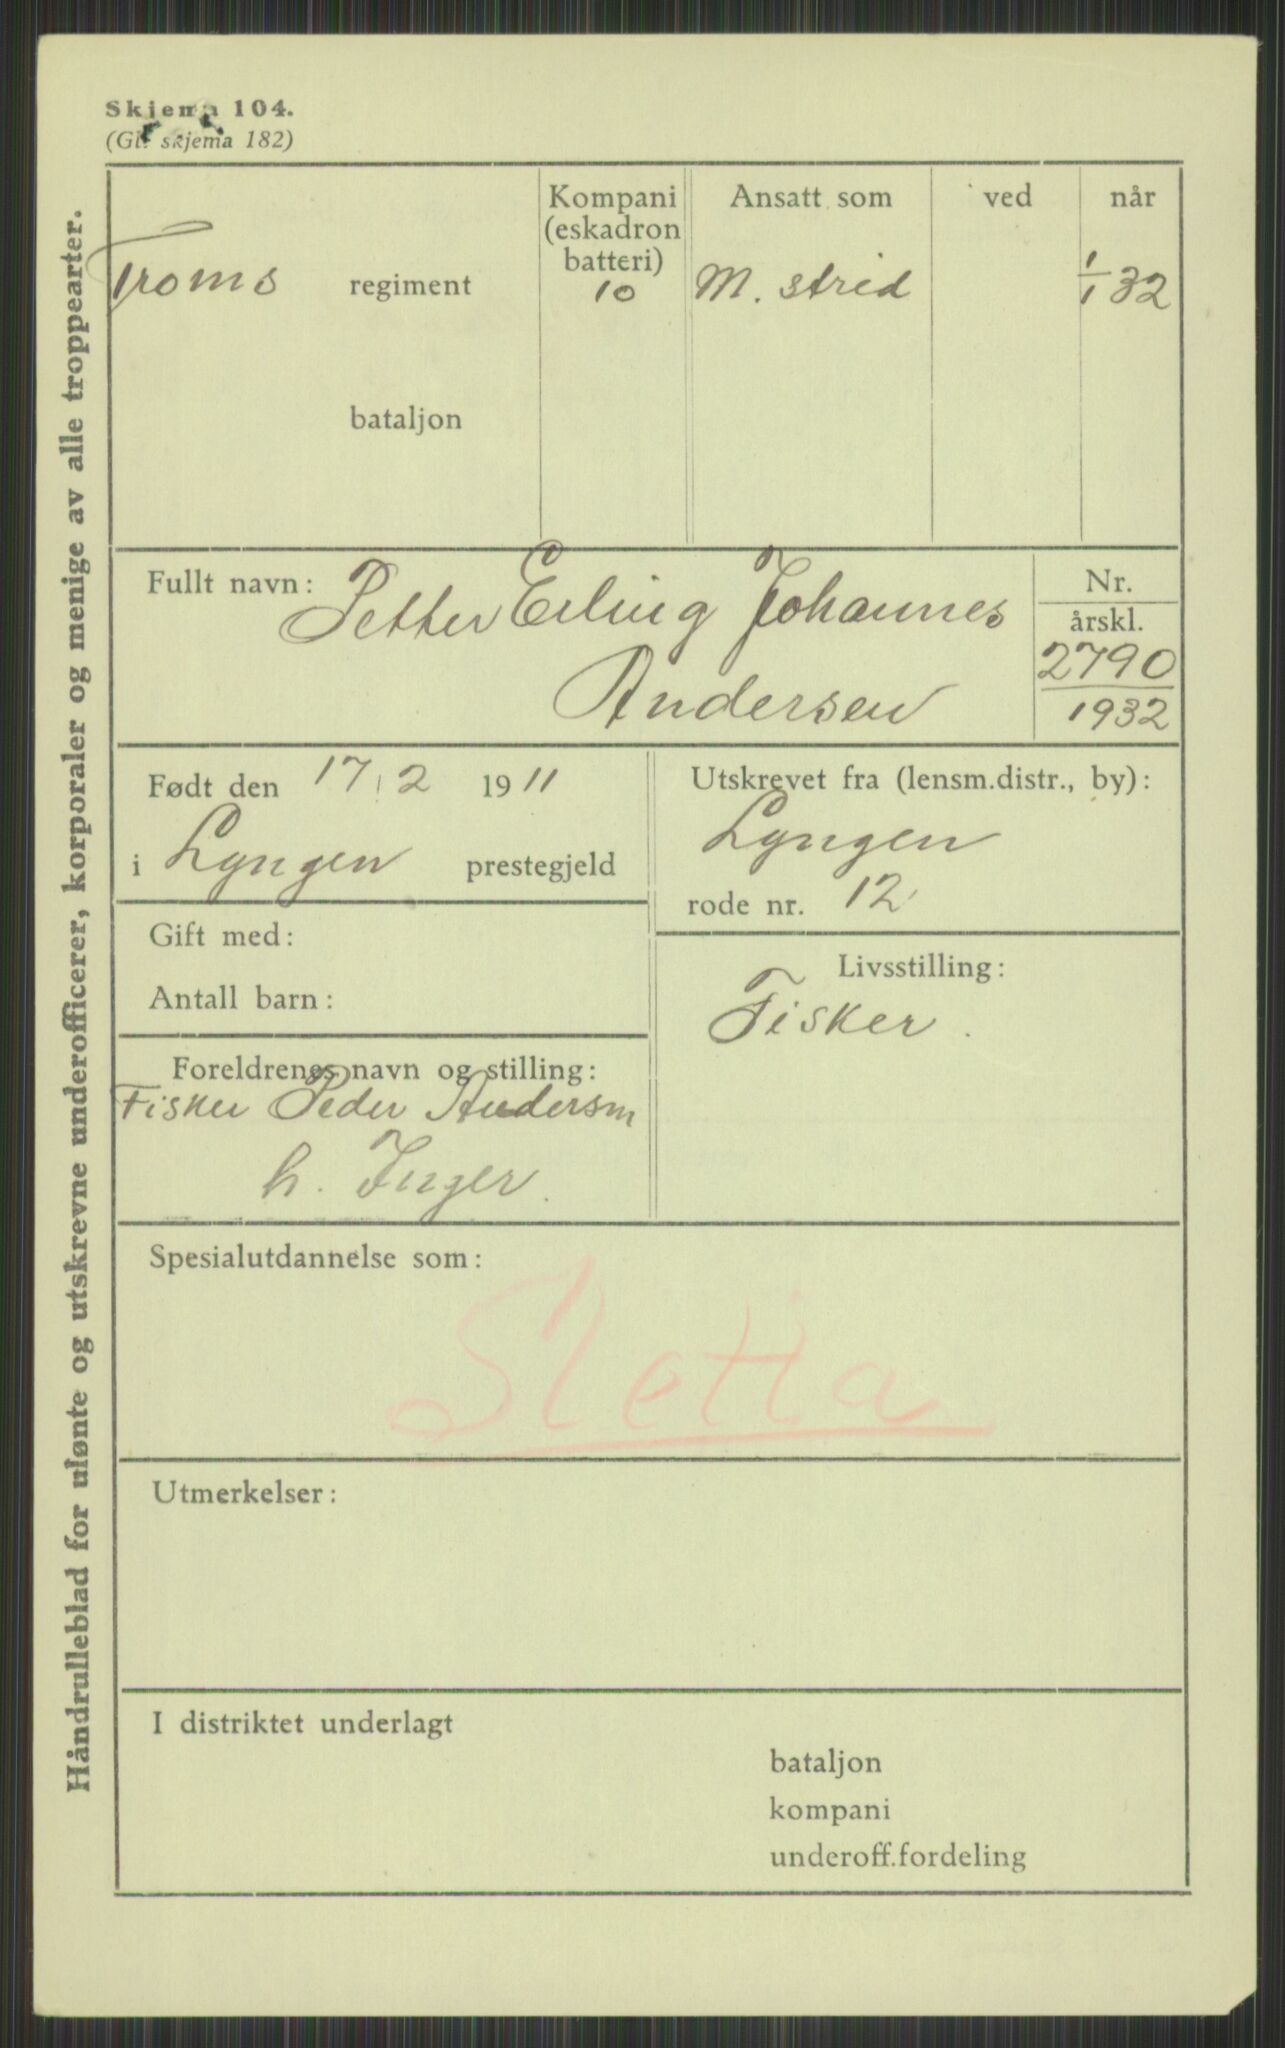 Skjema 104.
(Gl. skjema 182)
Håndrulleblad for ulønte og utskrevne underofficerer, korporaler og menige av alle troppearter.
Kompani (eskadron batteri)
Ansatt som
ved
når
Troms regiment
10
M. strid
1/1 32
bataljon
Fullt navn: Petter Erling Johannes
Andersen
Nr.
årskl.
2790
1932
Født den 17/2 1911
i Lyngen prestegjeld
Utskrevet fra (lensm.distr., by):
Lyngen
rode nr. 12
Gift med:
Antall barn:
Livsstilling:
Fisker.
Foreldrenes navn og stilling:
Fisker Peder Andersen
h. Inger.
Spesialutdannelse som:
Utmerkelser:
I distriktet underlagt
bataljon
kompani
underoff.fordeling